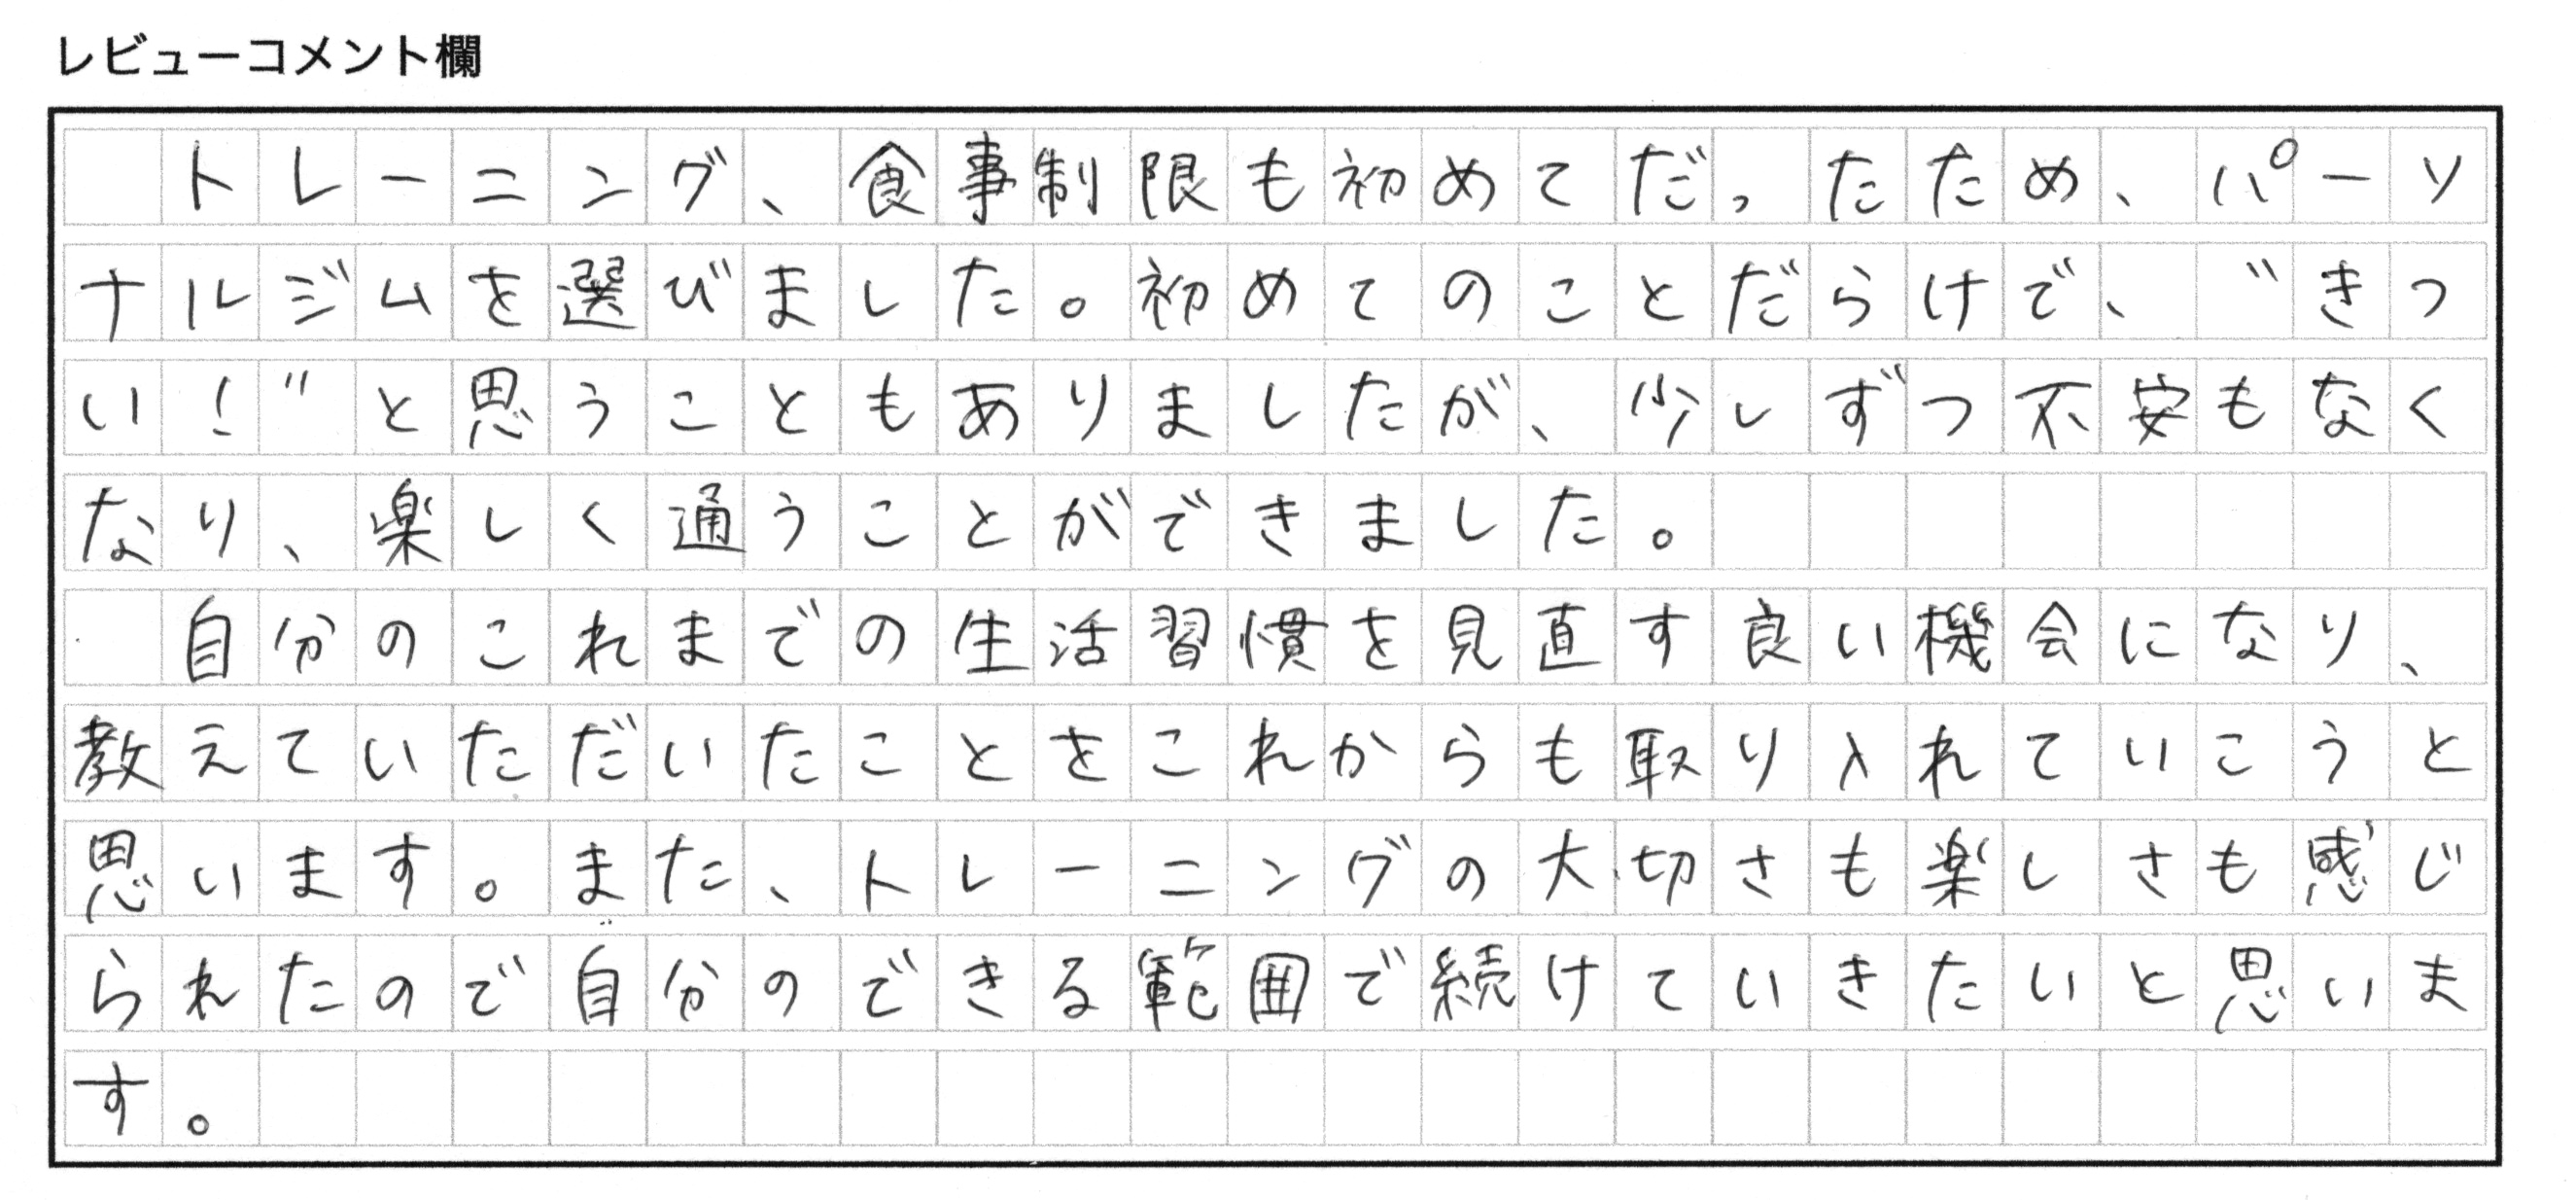 レビューコメント欄
　トレーニング、食事制限も初めてだったため、パーソ
ナルジムを選びました。初めてのことだらけで、〝きつ
い！〟と思うこともありましたが、少しずつ不安もなく
なり、楽しく通うことができました。
　自分のこれまでの生活習慣を見直す良い機会になり、
教えていただいたことをこれからも取り入れていこうと
思います。また、トレーニングの大切さも楽しさも感じ
られたので自分のできる範囲で続けていきたいと思いま
す。